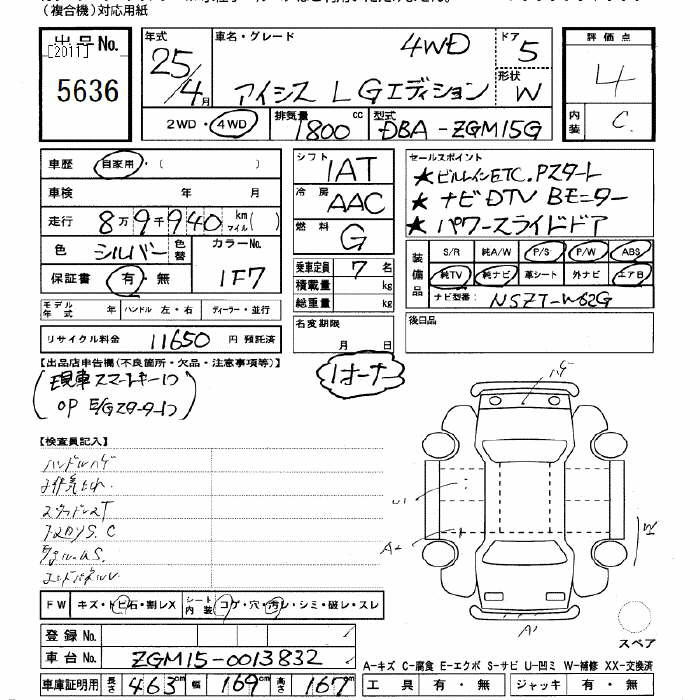 (複合機)対応用紙
出品No.
[2011]
5636
年式
25/4月
車名・グレード
4WD
アイシス L Gエディション
ドア
5
形状
W
評価点
4
内装
C.
2WD・4WD
排気量
1800cc
型式
DBA-ZGM15G
車歴 自家用・( )
車検 年 月
走行 8万9千940km マイル( )
色 シルバー 色替
カラーNo.
1F7
保証書 有・無
モデル年式 年 ハンドル 左・右 ディーラー・並行
リサイクル料金 11650 円 預託済
シフト
IAT
冷房
AAC
燃料
G
乗車定員 7 名
積載量 kg
総重量 kg
名変期限
月 日
セールスポイント
★ビルトインETC.Pスタート
★ナビDTV Bモニター
★パワースライドドア
装備品
S/R 純A/W P/S P/W ABS
純TV 純ナビ 革シート 外ナビ エアB
ナビ型番: NSZT-W62G
後日品
【出品店申告欄(不良箇所・欠品・注意事項等)】
現車スマートキー1コ
OP E/Gスターター1コ
1オーナー
【検査員記入】
ハンドルハゲ
FW キズ・トビ石・割レX
シート内装 コゲ・穴・汚レ・シミ・破レ・スレ
登録No.
車台No. ZGM15-0013832
車庫証明用 長さ 463cm 幅 169cm 高さ 167cm
ハゲ
U1
A2
W
スペア
A-キズ C-腐食 E-エクボ S-サビ U-凹ミ W-補修 XX-交換済
工具 有・無 ジャッキ 有・無